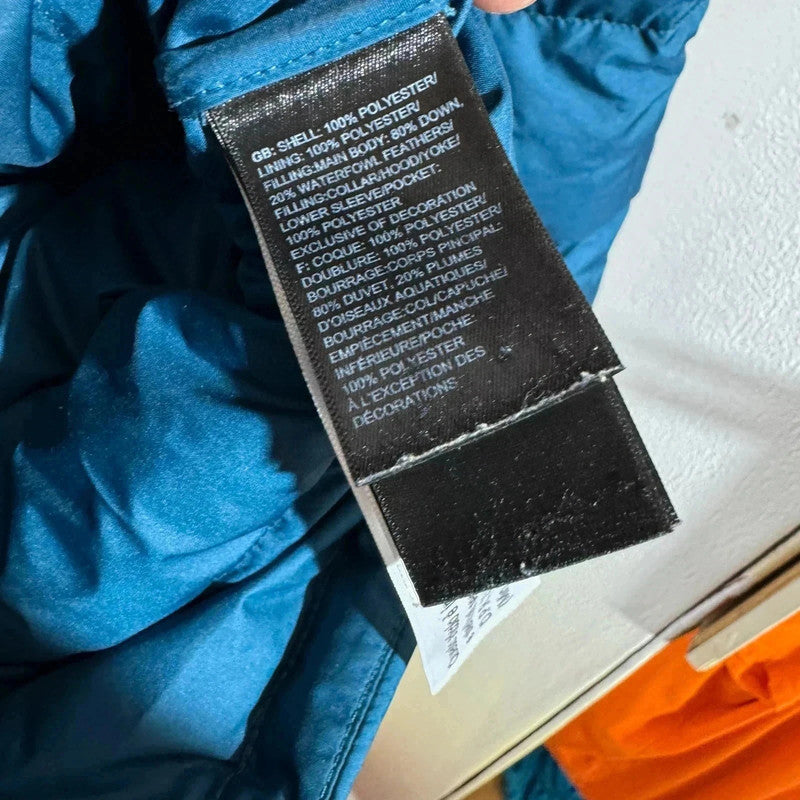 GB: SHELL: 100% POLYESTER/
LINING: 100% POLYESTER/
FILLING:MAIN BODY: 80% DOWN.
20% WATERFOWL FEATHERS/
FILLING:COLLAR/HOOD/YOKE/
LOWER SLEEVE/POCKET:
100% POLYESTER
EXCLUSIVE OF DECORATION
F: COQUE: 100% POLYESTER/
DOUBLURE: 100% POLYESTER/
BOURRAGE:CORPS PINCIPAL:
80% DUVET. 20% PLUMES
D'OISEAUX AQUATIQUES/
BOURRAGE:COL/CAPUCHE/
EMPIÈCEMENT/MANCHE
INFÉRIEURE/POCHE:
100% POLYESTER
À L'EXCEPTION DES
DÉCORATIONS